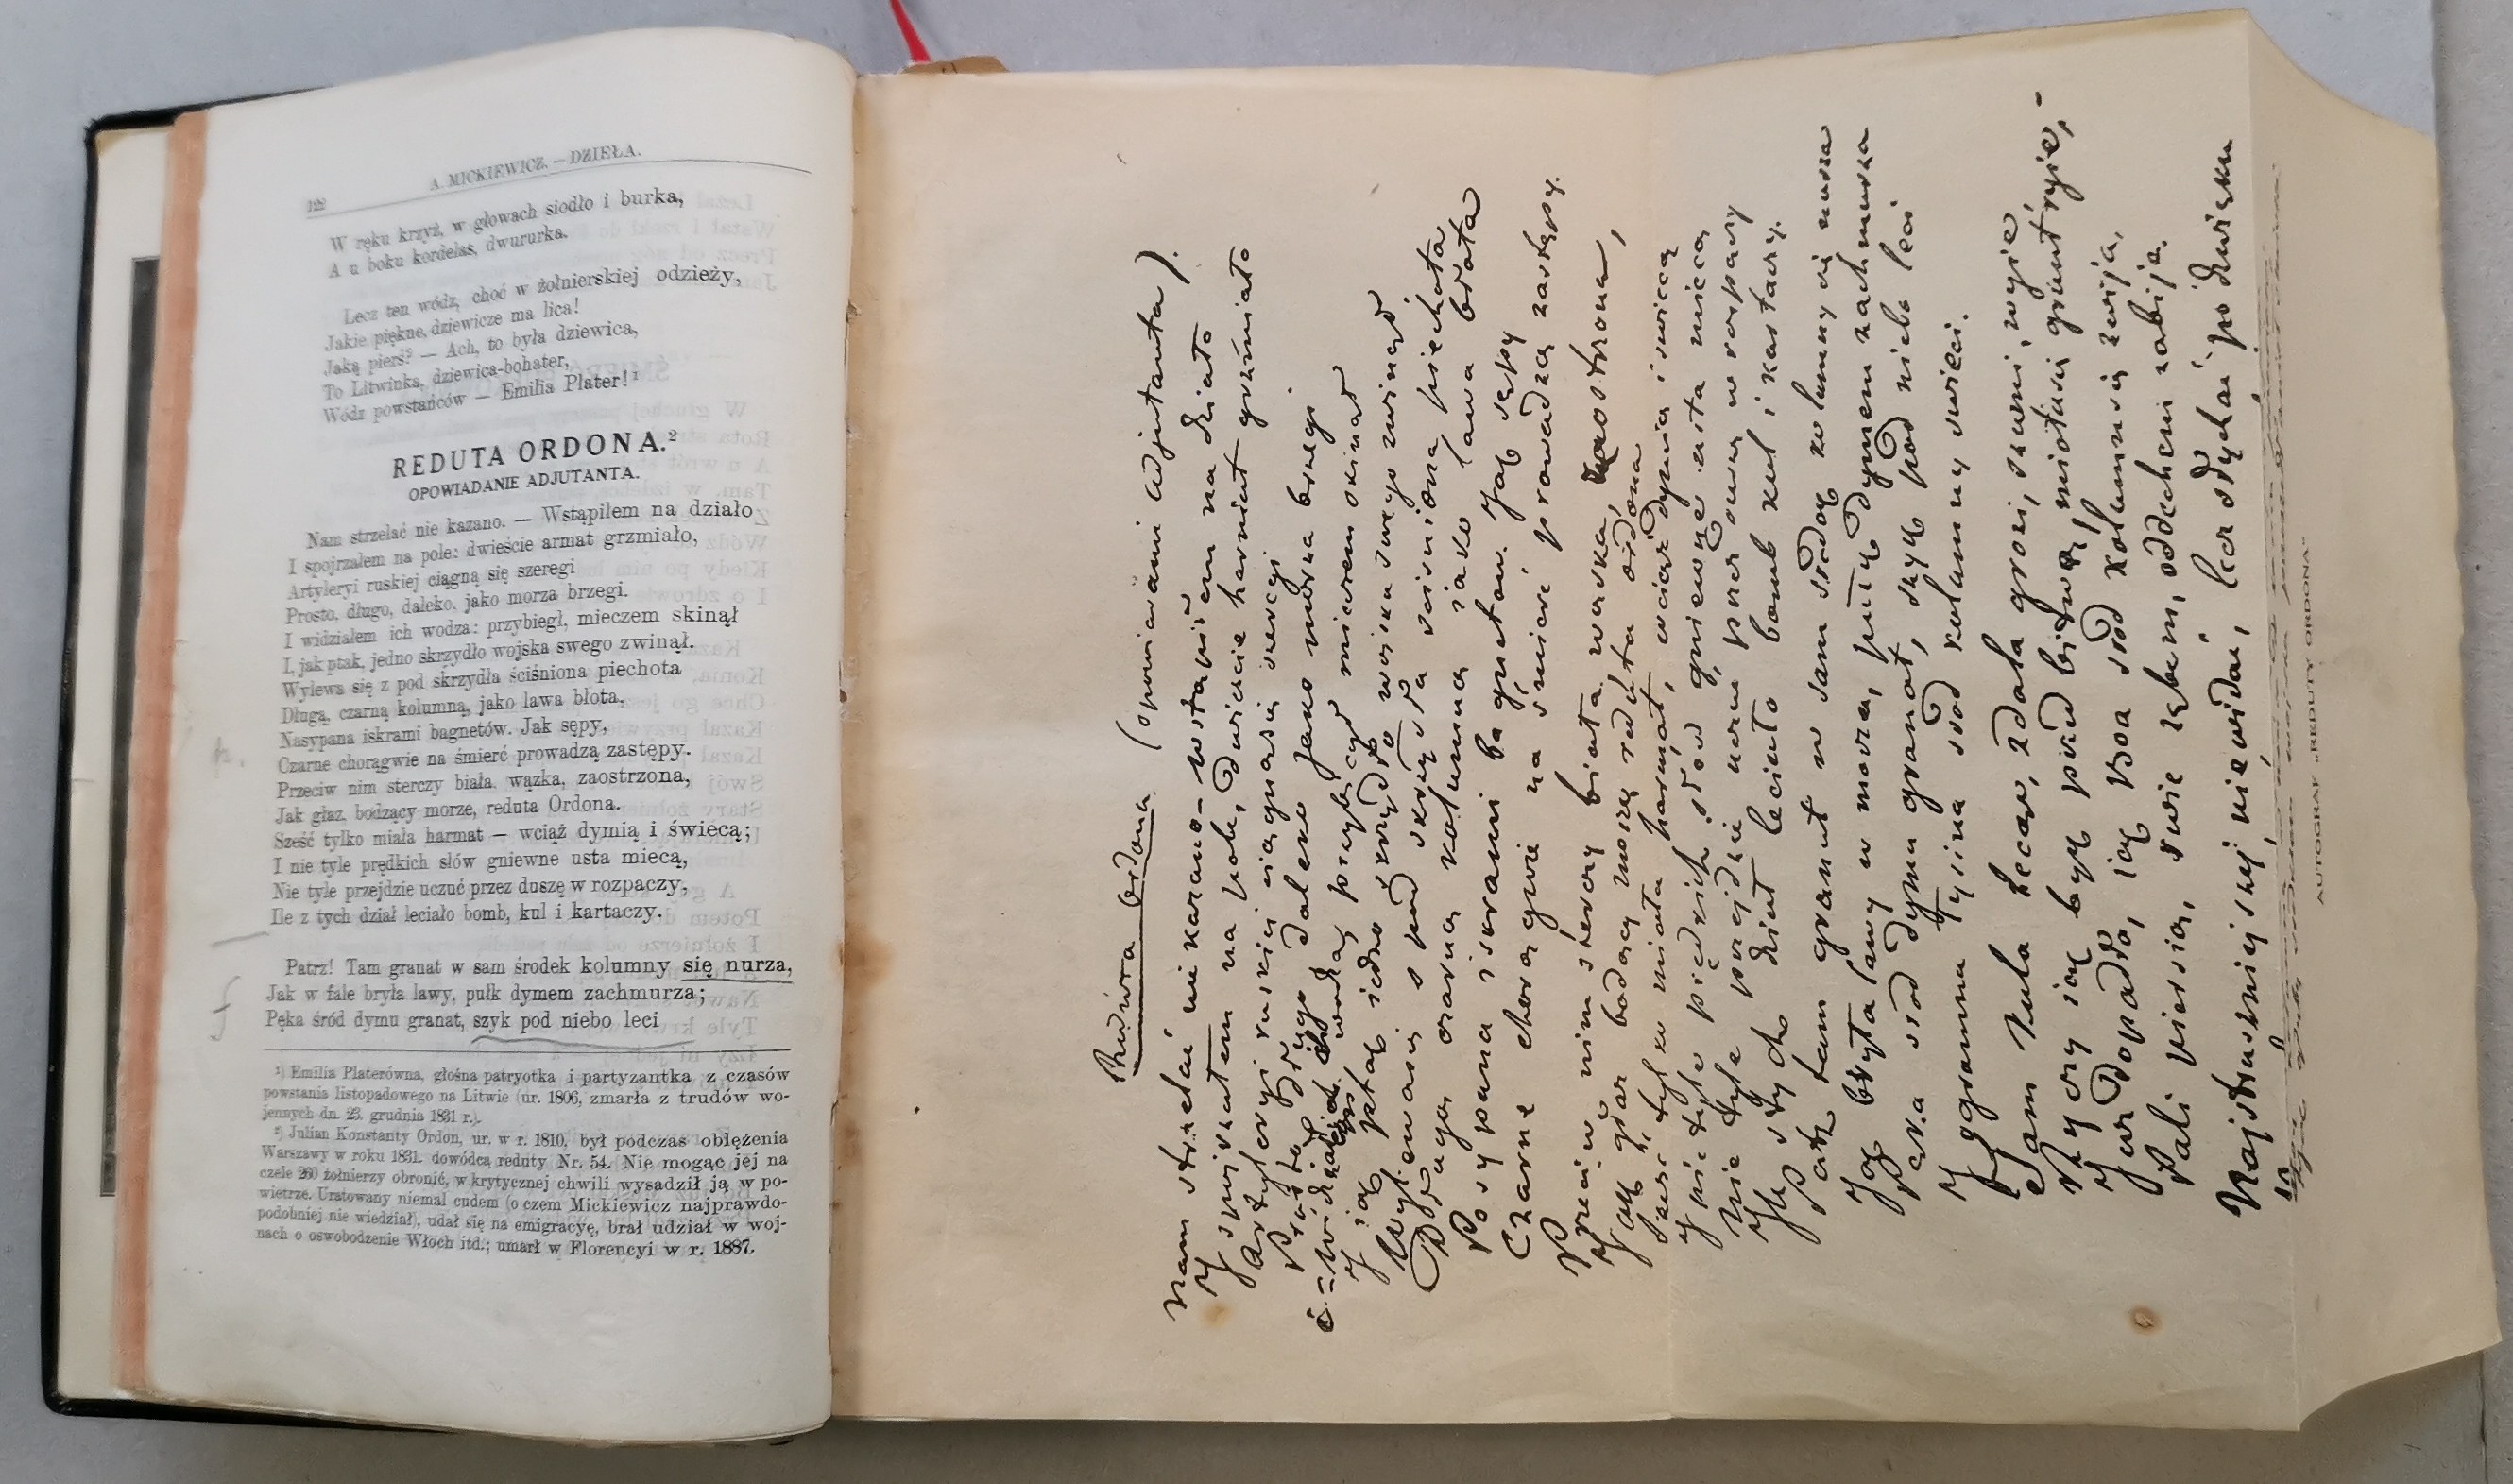 122
A. MICKIEWICZ. — DZIEŁA.
W ręku krzyż, w głowach siodło i burka,
A u boku kordelas, dwururka.
Lecz ten wódz, choć w żołnierskiej odzieży,
Jakie piękne, dziewicze ma lica!
Jaką pierś? — Ach, to była dziewica,
To Litwinka, dziewica-bohater,
Wódz powstańców — Emilia Plater!¹
REDUTA ORDONA.²
OPOWIADANIE ADJUTANTA.
Nam strzelać nie kazano. — Wstąpiłem na działo
I spojrzałem na pole: dwieście armat grzmiało,
Artyleryi ruskiej ciągną się szeregi
Prosto, długo, daleko, jako morza brzegi.
I widziałem ich wodza: przybiegł, mieczem skinął
I, jak ptak, jedno skrzydło wojska swego zwinął.
Wylewa się z pod skrzydła ściśniona piechota
Długą, czarną kolumną, jako lawa błota,
Nasypana iskrami bagnetów. Jak sępy,
Czarne chorągwie na śmierć prowadzą zastępy.
Przeciw nim sterczy biała, wązka, zaostrzona,
Jak głaz, bodzący morze, reduta Ordona.
Sześć tylko miała harmat — wciąż dymią i świecą;
I nie tyle prędkich słów gniewne usta miecą,
Nie tyle przejdzie uczuć przez duszę w rozpaczy,
Ile z tych dział leciało bomb, kul i kartaczy.
Patrz! Tam granat w sam środek kolumny się nurza,
Jak w fale bryła lawy, pułk dymem zachmurza;
Pęka śród dymu granat, szyk pod niebo leci
¹) Emilia Platerówna, głośna patryotka i partyzantka z czasów
powstania listopadowego na Litwie (ur. 1806, zmarła z trudów wo-
jennych dn. 23. grudnia 1831 r.).
²) Julian Konstanty Ordon, ur. w r. 1810, był podczas oblężenia
Warszawy w roku 1831. dowódcą reduty Nr. 54. Nie mogąc jej na
czele 260 żołnierzy obronić, w krytycznej chwili wysadził ją w po-
wietrze. Uratowany niemal cudem (o czem Mickiewicz najprawdo-
podobniej nie wiedział), udał się na emigracyę, brał udział w woj-
nach o oswobodzenie Włoch itd.; umarł w Florencyi w r. 1887.
Ordona (opowiadanie Adjutanta).
Nam strzelać nie kazano – wstąpiłem na działo
I spojrzałem na pole, dwieście harmat grzmiało
Artyleryi ruskiej ciągną się szeregi
Prosto długo daleko jako morza brzegi
widział wodza, przybiegł mieczem skinął
I jak ptak jedno skrzydło wojska swego zwinął
Wylewa się z pod skrzydła ściśniona piechota
Długą czarną kolumną jako lawa błota
Nasypana iskrami bagnetów. Jak sępy
Czarne chorągwie na śmierć prowadzą zastępy.
Przeciw nim sterczy biała wązka, zaostrzona,
Jak głaz bodący morze reduta Ordona
Sześć tylko miała harmat, wciąż dymią i świecą
I nie tyle prędkich słów gniewne usta miecą
Nie tyle przejdzie uczuć przez duszę w rozpaczy
Ile z tych dział leciało bomb kul i kartaczy.
Patrz tam granat w sam środek kolumny się nurza
Jak bryła lawy w morza, pułk dymem zachmurza
Pęka środ dymu granat, szyk pod niebo leci
I ogromna łysina środ kolumny świeci.
Tam kula lecąc, zdala grozi, szumi, wyie
Ryczy iak byk przed bitwą, miota się grunt ryie,–
Już dopadła, iak boa środ kolumn się zwija,
Pali piersią, rwie zębem, oddechem zabija.
Najstraszniejszej nie widać, lecz słychać po dźwięku
AUTOGRAF „REDUTY ORDONA“